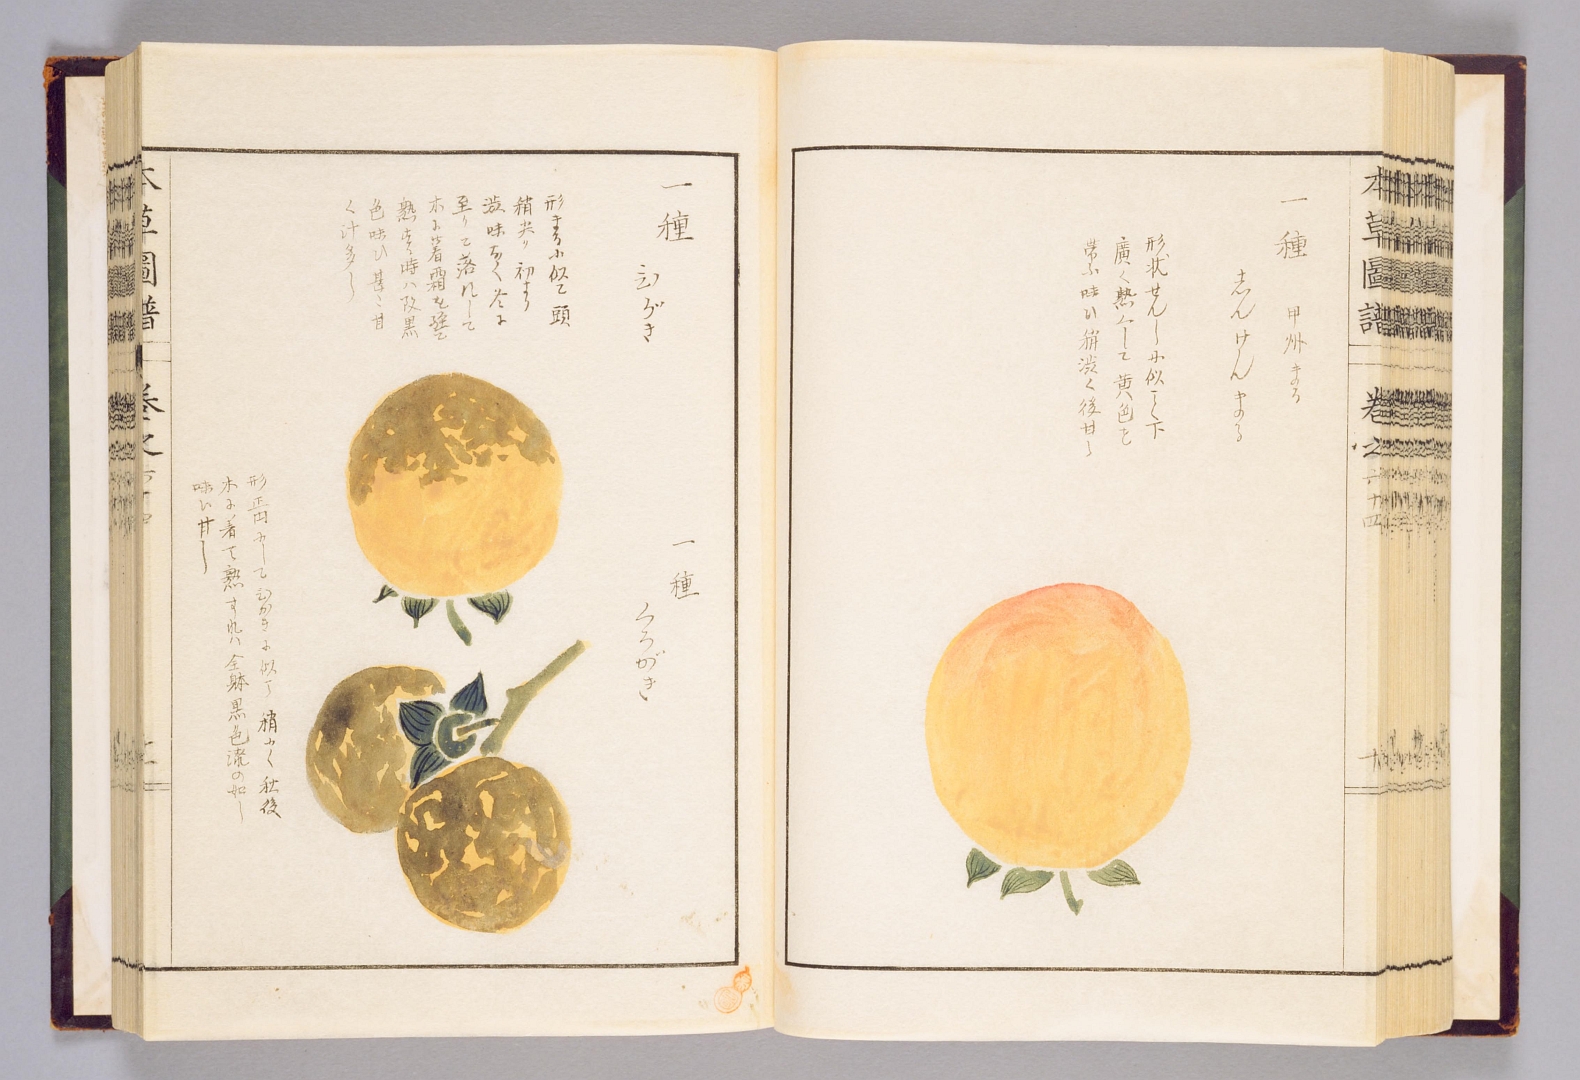 本草圖譜 卷之六十四
一種 甲州まる
志んけんまる
形状せんしに似て下
廣く熟して黄色を
帯ふ味ひ稍渋く後甘し
一種
ひがき
形まるに似て頭
稍尖り初より
澁味なく冬に
至りて落れして
木に着霜を經て
熟する時ハ改黒
色味ひ甚こ甘
く汁多し
一種
くろがき
形正円にしてひがきに似て稍小く秋後
木に着て熟すれハ全躰黒色漆の如し
味ひ甘し
本草圖譜 卷之